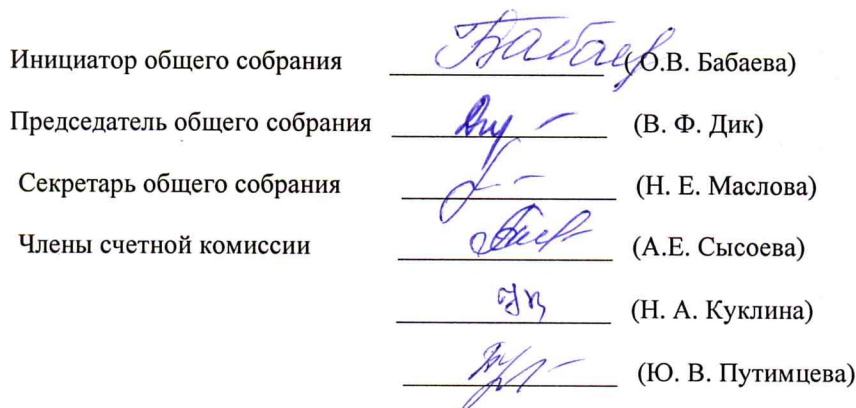 Инициатор общего собрания Бабаев (О.В. Бабаева)
Председатель общего собрания (В. Ф. Дик)
Секретарь общего собрания (Н. Е. Маслова)
Члены счетной комиссии (А.Е. Сысоева)
(Н. А. Куклина)
(Ю. В. Путимцева)